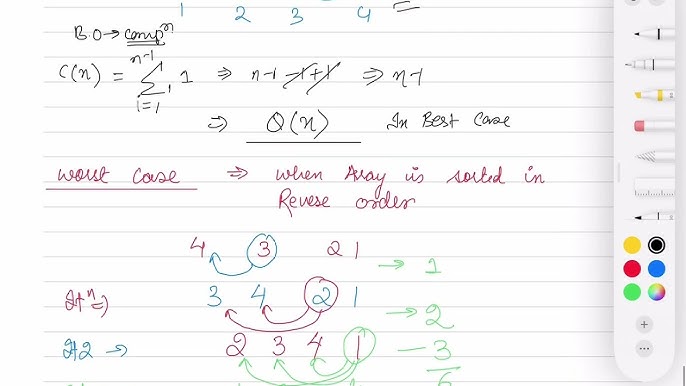 1 2 3 4 =
B.O → Compⁿ
C(n) = n-1 ∑ i=1 1 ⇒ n-1-1+1 ⇒ n-1
⇒ Θ(n) In Best Case
Worst Case ⇒ when Array is sorted in
Revese order
4 3 2 1 → 1
Itⁿ ⇒ 3 4 2 1 → 2
It 2 → 2 3 4 1 - 3
6